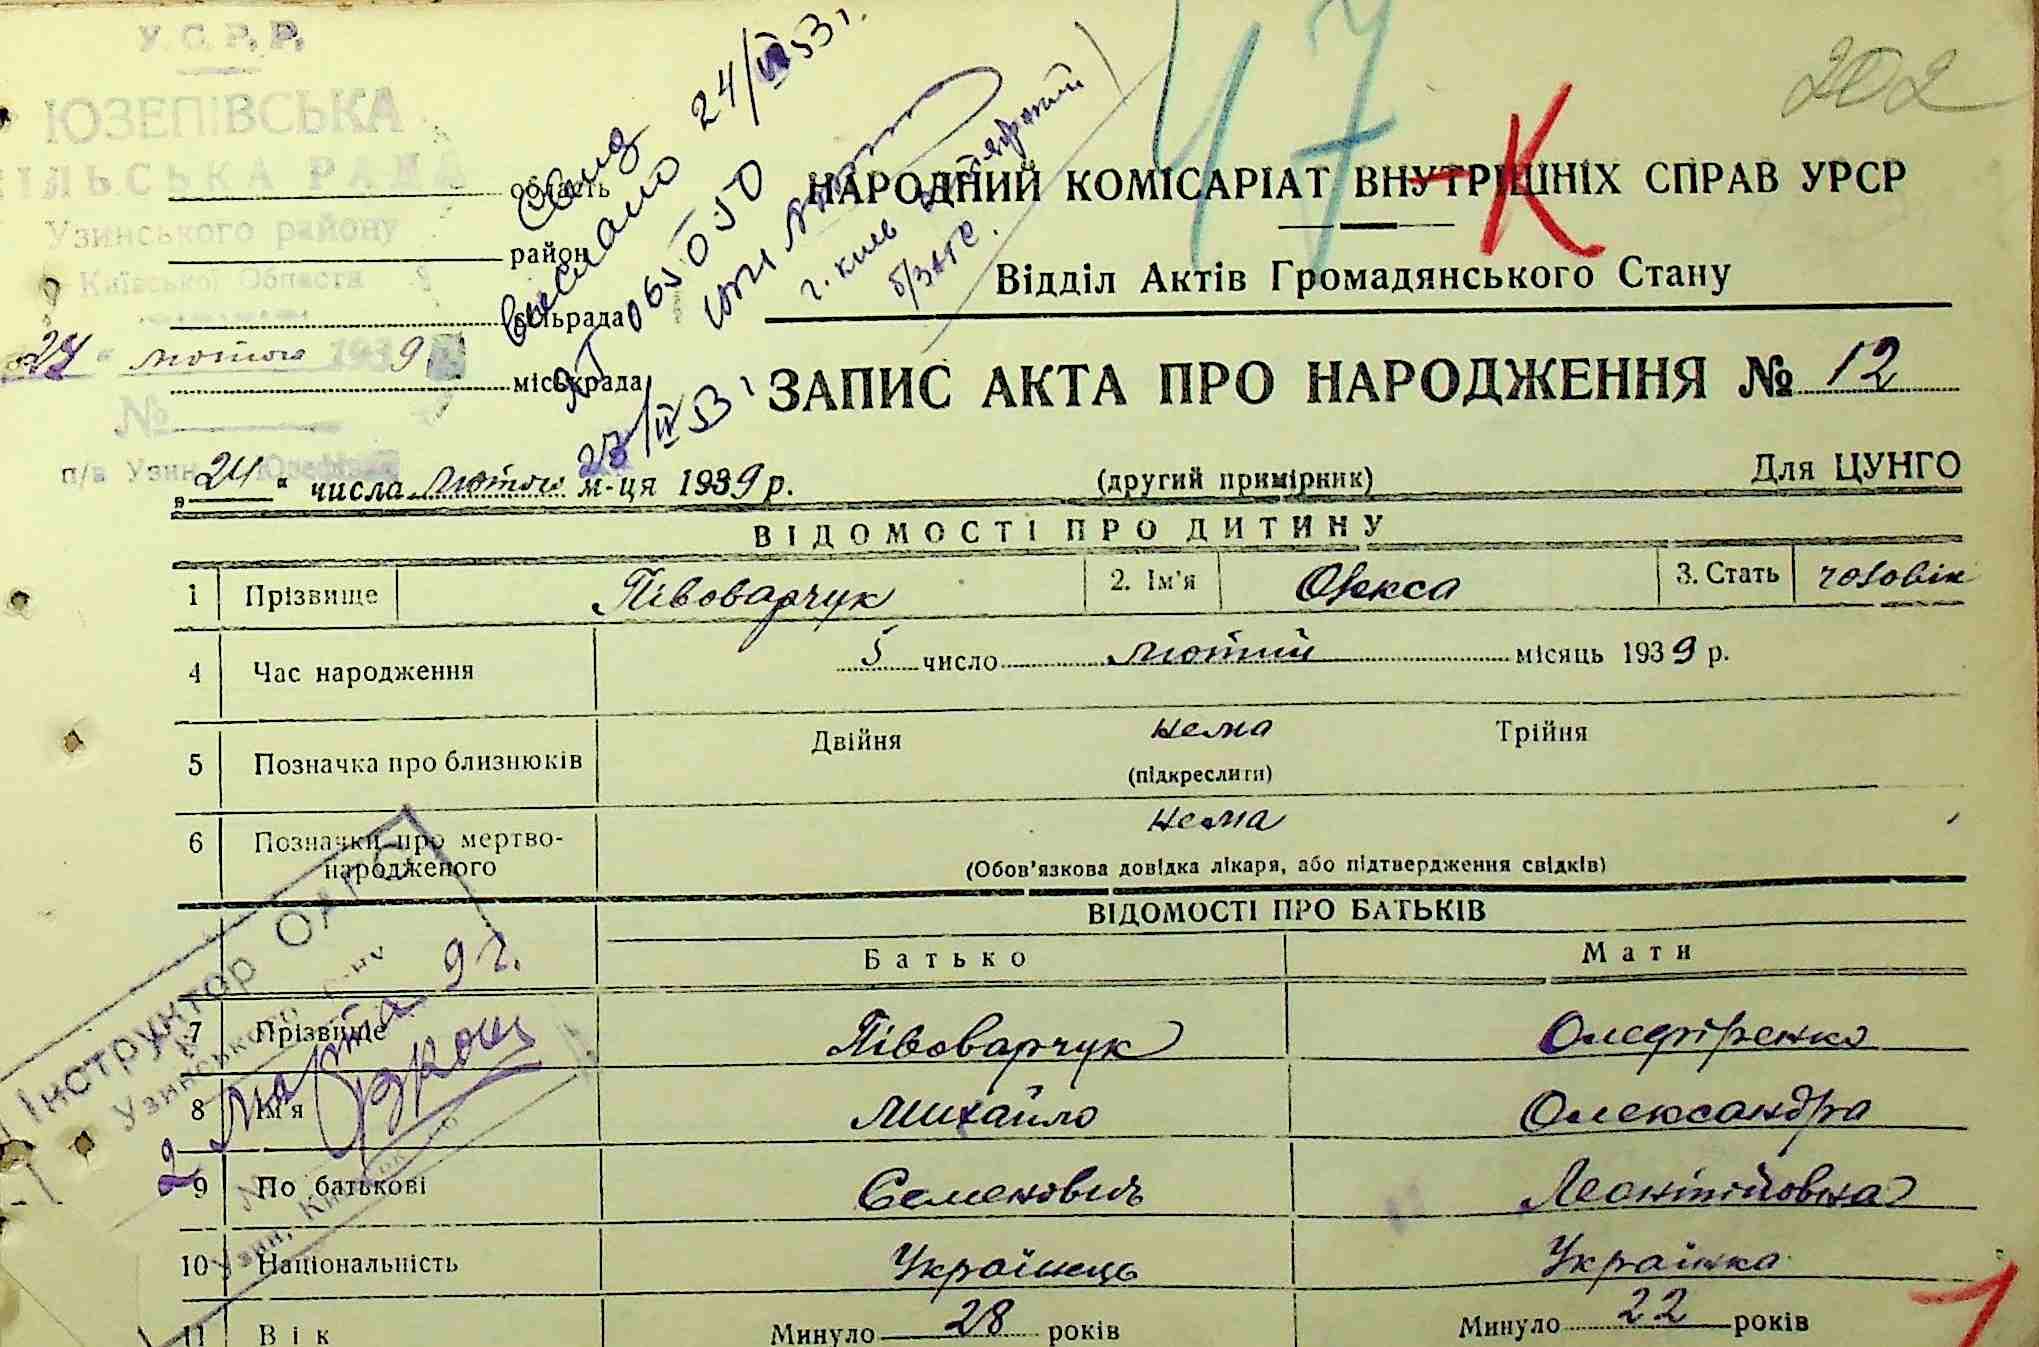 У.С.Р.Р.
ЮЗЕПІВСЬКА
СІЛЬСЬКА РАДА
Узинського району
Київської Області
27 " лютого 1939
№
п/в Узин
область
район
сільрада
міськрада
выслано 24/IV 53 г.
065050
б/ЗАГС.
23/IV 53
47
К
202
НАРОДНИЙ КОМІСАРІАТ ВНУТРІШНІХ СПРАВ УРСР
Відділ Актів Громадянського Стану
ЗАПИС АКТА ПРО НАРОДЖЕННЯ № 12
„ 24 " числа лютого м-ця 1939 р. (другий примірник) Для ЦУНГО
ВІДОМОСТІ ПРО ДИТИНУ
1 Прізвище Півоварчук 2. Ім'я Олекса 3. Стать чоловік
4 Час народження 5 число лютий місяць 1939 р.
5 Позначка про близнюків Двійня нема Трійня
(підкреслити)
6 Позначки про мертво- нема
народженого (Обов'язкова довідка лікаря, або підтвердження свідків)
ВІДОМОСТІ ПРО БАТЬКІВ
Батько Мати
7 Прізвище Півоварчук Олефіренко
8 Ім'я Михайло Олександра
9 По батькові Семенович Леонтійовна
10 Національність Українець Українка
11 Вік Минуло 28 років Минуло 22 років
Інструктор ОАГС
Узинського
2 марта 9 г.